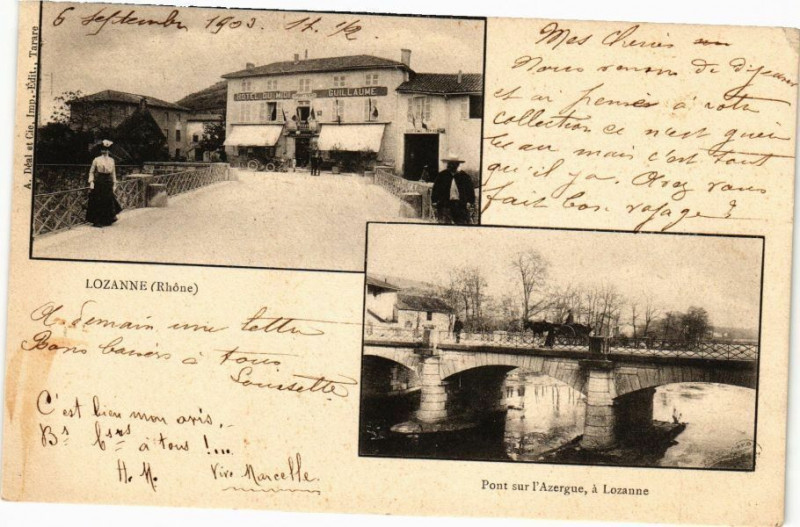 6 Septembre 1903. 11. ½
A. Déal et Cie, Imp.-Edit., Tarare
HOTEL DU MIDI GUILLAUME
Mes Chéris
Nous venons de dîjeuner
et on pense à votre
collection ce n'est guère
beau mais c'est tout
qu'il y a. Avez vous
fait bon voyage?
LOZANNE (Rhône)
A demain une lettre
Bons baisers à tous
Louisette
C'est bien mon avis..
Bs bsrs à tous !...
H. M. Vive Marcelle.
Pont sur l'Azergue, à Lozanne